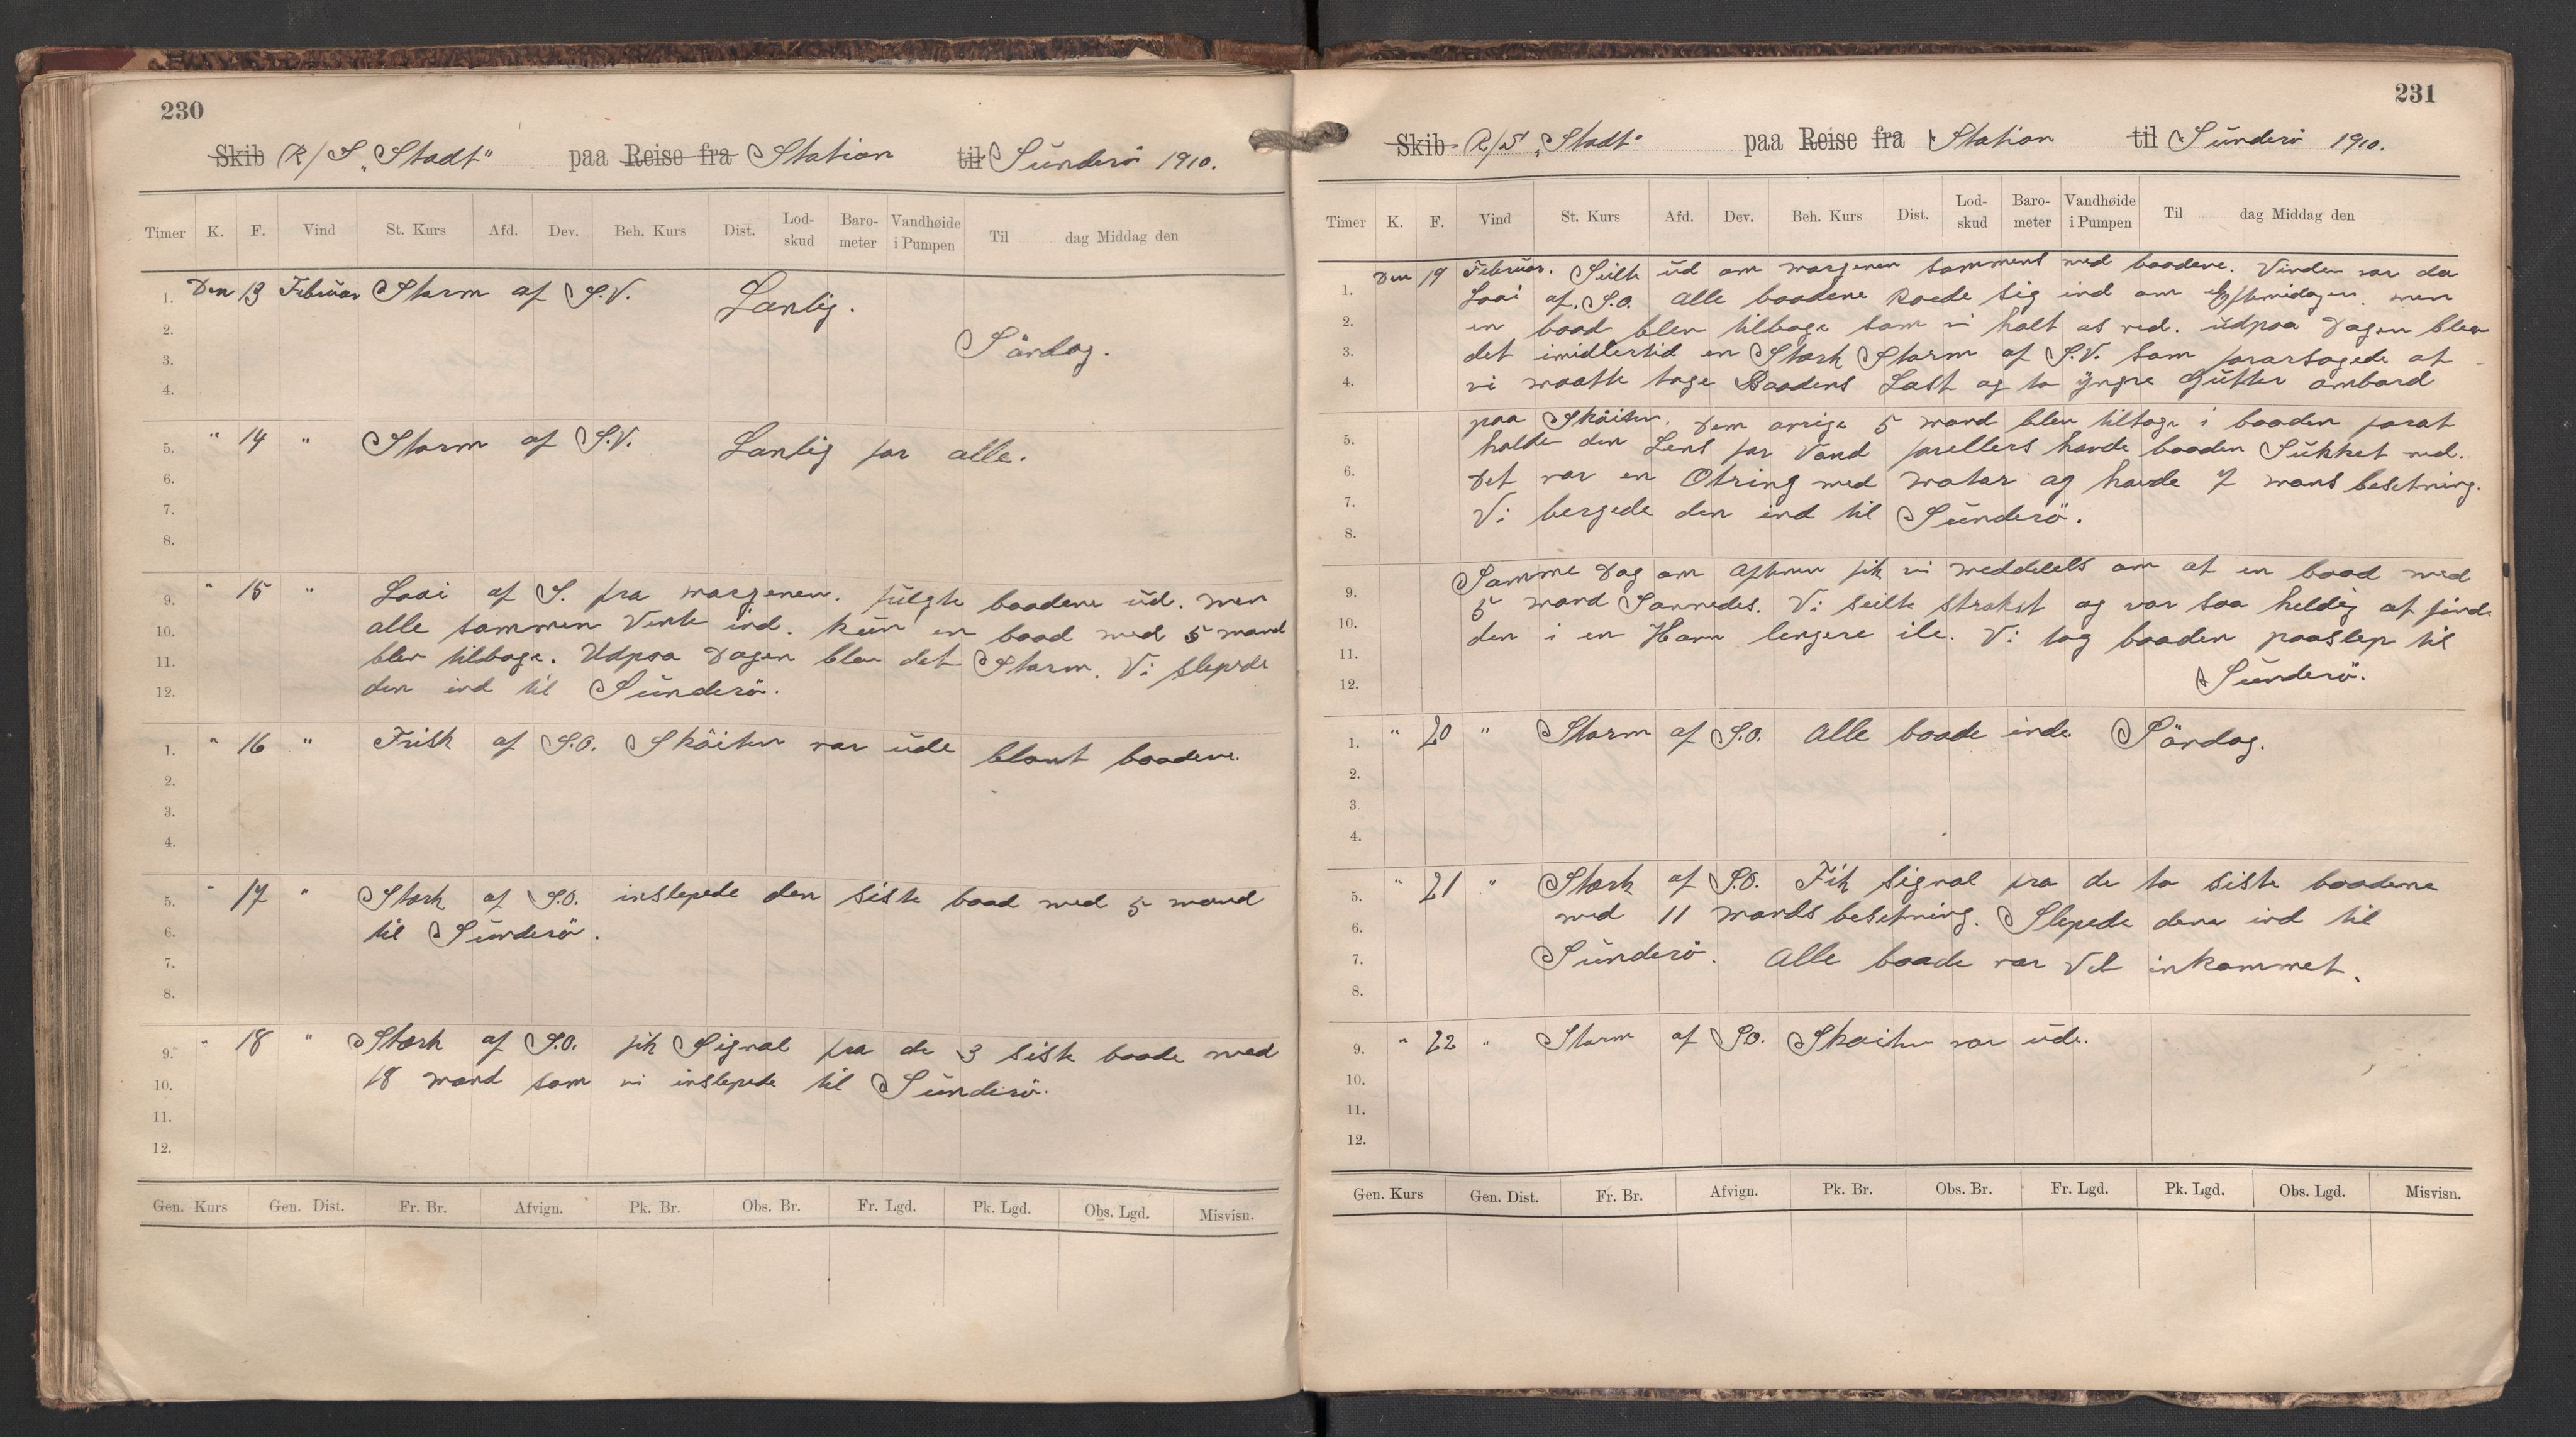 230
Skib R/S „Stadt" paa Reise fra Station til Sünderö 1910.
Timer K. F. Vind St. Kurs Afd. Dev. Beh. Kurs Dist. Lod-skud Baro-meter Vandhøide i Pumpen Til dag Middag den
1. Den 13 Februar Storm af S.V. Lanlig.
2.
3. Söndag.
4.
5. " 14 " Storm af S.V. Lanlig for alle.
6.
7.
8.
9. " 15 " Laai af S. fra morgenen. fülgte baadene üd. men
10. alle sammen Vente ind. kün en baad med 5 mand
11. blev tilbage. Udpaa Dagen blev det Storm. Vi slepede
12. den ind til Sünderö.
1. " 16 " Frisk af S.O. Sköiten var üde blant baadene.
2.
3.
4.
5. " 17 " Stærk af S.O. inslepede den siste baad med 5 mand
6. til Sünderö.
7.
8.
9. " 18 " Stærk af S.O. fik Signal fra de 3 siste baade med
10. 18 mand som vi inslepede til Sünderö.
11.
12.
Gen. Kurs Gen. Dist. Fr. Br. Afvign. Pk. Br. Obs. Br. Fr. Lgd. Pk. Lgd. Obs. Lgd. Misvisn.
231
Skib R/S „Stadt" paa Reise fra Station til Sünderö 1910.
Timer K. F. Vind St. Kurs Afd. Dev. Beh. Kurs Dist. Lod-skud Baro-meter Vandhøide i Pumpen Til dag Middag den
Den 19 Februar. Seilte üd om morgenen sammens med baadene. Vinden var da
1. Laai af. S.O. alle baadene Roede sig ind om eftermidagen. men
2. en baad blev tilbage som vi holt os ved. üdpaa Dagen blev
3. det imidlertid en Stærk Storm af S.V. som foraarsagede at
4. vi maatte tage Baadens Last og to yngre Gütter ombord
paa Sköiten. Dem övrige 5 mand blev tilbage i baaden forat
5. holde den Lens for Vand forellers havde baaden Sükket ned.
6. Det var en Otring med motor og havde 7 mans besetning.
7. Vi bergede den ind til Sünderö.
8.
9. Samme Dag om aftenen fik vi meddelels om at en baad med
10. 5 mand Savnedes. Vi seilte strakst og var saa heldig at finde
11. den i en Havn lengere ile. Vi tog baaden paaslep til
12. Sünderö.
1. " 20 " Storm af S.O. Alle baade inde Söndag.
2.
3.
4.
5. " 21 " Stærk af S.O. Fik Signal fra de to siste baadene
6. med 11 mands besetning. Slepede dem ind til
7. Sünderö. Alle baade var Vel inkommet.
8.
9. " 22 " Storm af S.O. Skoiten var üde.
10.
11.
12.
Gen. Kurs Gen. Dist. Fr. Br. Afvign. Pk. Br. Obs. Br. Fr. Lgd. Pk. Lgd. Obs. Lgd. Misvisn.